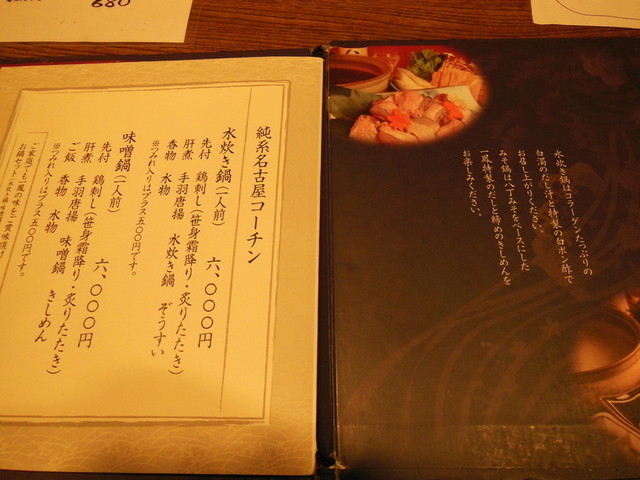 水炊き鍋はコラーゲンたっぷりの
白濁のだし汁と特製の白ポン酢で
お召し上がりください。
みそ鍋は八丁みそをベースにした
一鳳特等のだしと締めのきしめんを
お楽しみください。
純系名古屋コーチン
水炊き鍋(一人前) 六、〇〇〇円
先付 鶏刺し(笹身霜降り・炙りたたき)
肝煮 手羽唐揚 水炊き鍋 ぞうすい
香物 水物
※つみれ入りはプラス五〇〇円です。
味噌鍋(一人前) 六、〇〇〇円
先付 鶏刺し(笹身霜降り・炙りたたき)
肝煮 手羽唐揚 味噌鍋 きしめん
ご飯 香物 水物
※つみれ入りはプラス五〇〇円です。
ご家庭でも一鳳の味をご賞味頂け
680